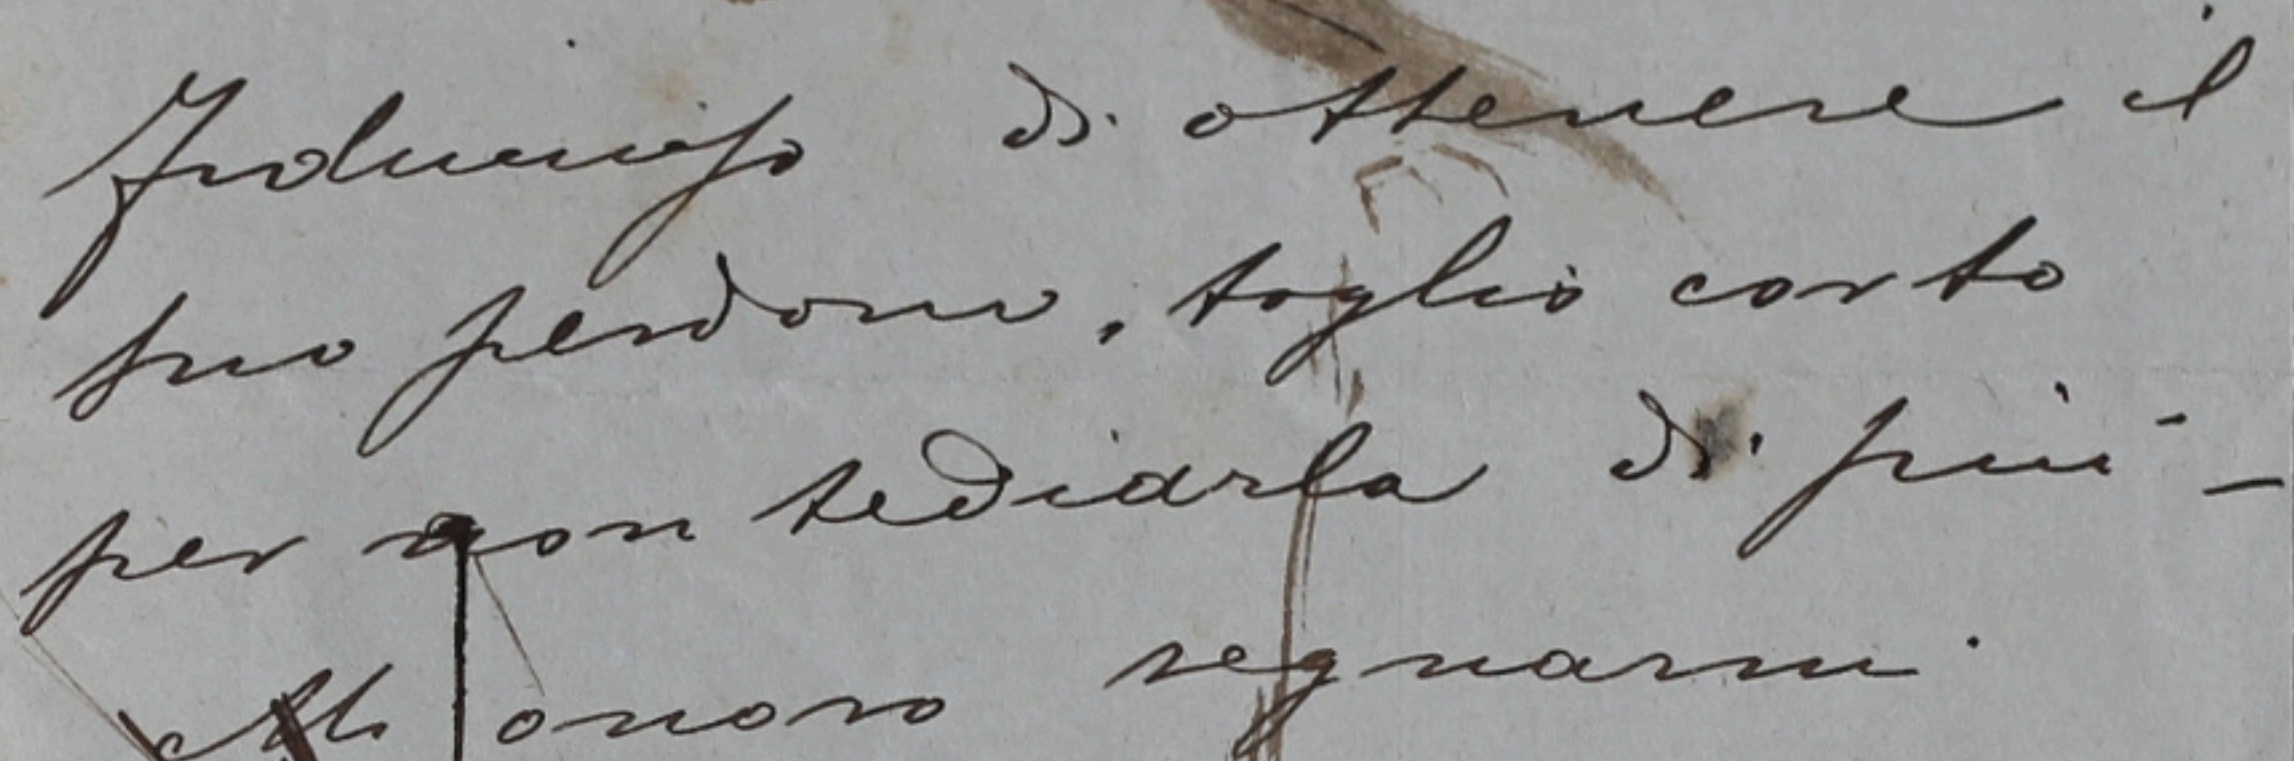 Fiducioso di ottenere il
suo perdono, toglio corto
per non tediarla di più -
Mi onoro segnarmi